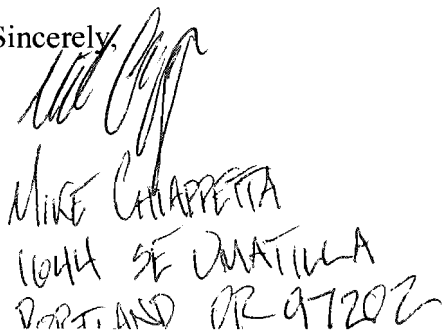 Sincerely,
MIKE CHIAPPETTA
1644 SE UMATILLA
PORTLAND OR 97202